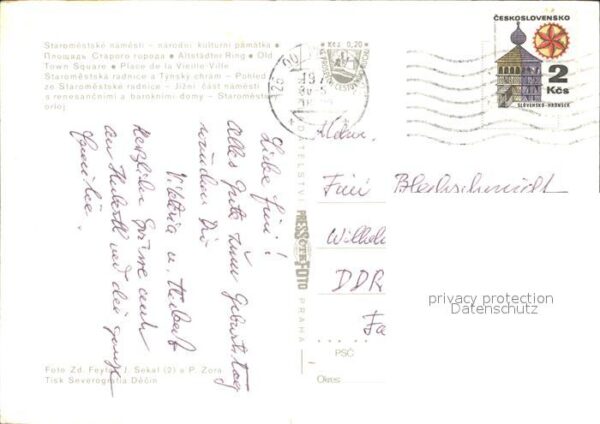 Staroměstské náměstí - národní kulturní památka •
Площадь Старого города • Altstädter Ring • Old
Town Square • Place de la Vieille Ville
Staroměstská radnice a Týnský chrám - Pohled
ze Staroměstské radnice - Jižní část náměstí
s renesančními a barokními domy - Staroměstský
orloj
Liebe Fini!
Alles Gute zum Geburtstag
wünschen Dir
Viktoria u. Herbert
Herzliche Grüße auch
an Hubertl und die ganze
Familie.
Foto Zd. Feyfar, J. Sekal (2) a P. Zora
Tisk Severografia Děčín
VYDAVATELSTVÍ PRESSFOTO PRAHA
Kčs 0,20
ČESKOSLOVENSKO
2
Kčs
SLOVENSKO-HRONSEK
Fini Blechschmidt
Wilhel
DDR
Fa
PSČ
Okres
privacy protection
Datenschutz